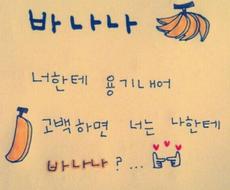 바나나
너한테 용기내어
고백하면 너는 나한테
바나나?...